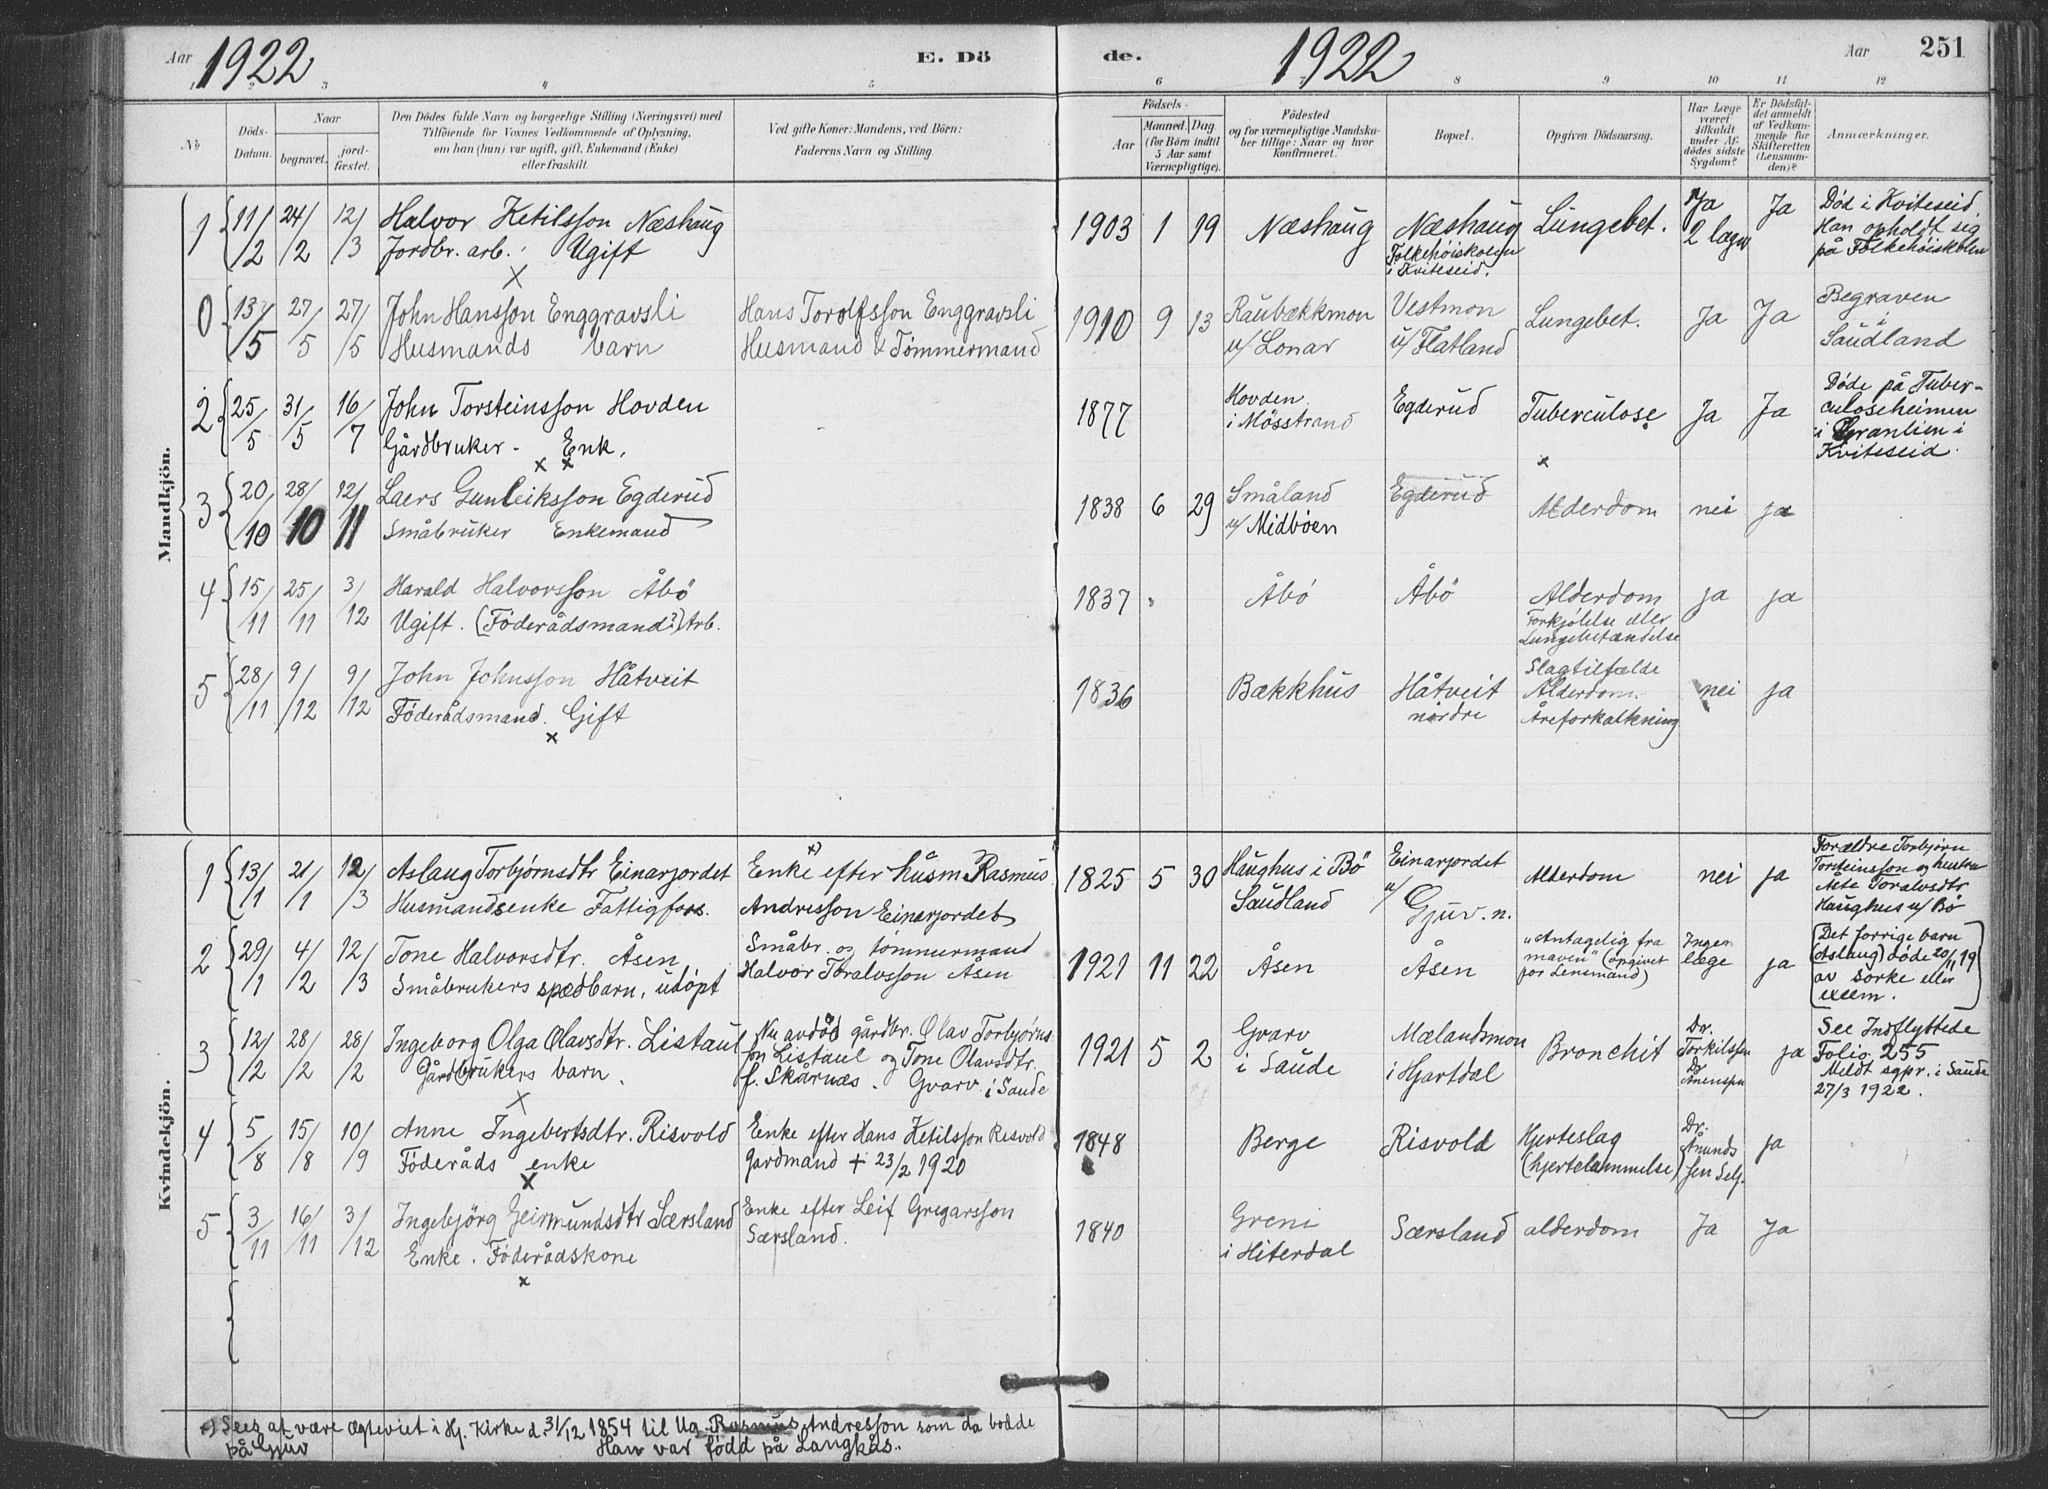 Aar 1922
E. Döde.
1922
Aar 251
1 2 3 4 5 6 8 9 10 11 12
№
Döds-Datum.
Naar
begravet.
jordfæstet.
Den Dödes fulde Navn og borgerlige Stilling (Næringsvei) med
Tilföiende for Voxnes Vedkommende af Oplysning,
om han (hun) var ugift, gift, Enkemand (Enke)
eller fraskilt.
Ved gifte Koner: Mandens, ved Börn:
Faderens Navn og Stilling.
Födsels-
Aar
Maaned. Dag
(for Börn indtil
5 Aar samt
Værnepligtige).
Födested
og for værnepligtige Mandskaber
tillige: Naar og hvor
konfirmeret.
Bopæl.
Opgiven Dödsaarsag.
Har Læge
været
tilkaldt
under Afdödes
sidste
Sygdom?
Er Dödsfaldet
anmeldt
af Vedkommende
for
Skifteretten
(Lensmanden)?
Anmærkninger.
Mandkjön.
1 11/2 24/2 12/3 Halvor Ketilsson Næshaug
Jordbr. arb. Ugift
1903 1 19 Næshaug Næshaug
Folkehöiskolen
i Kviteseid.
Lungebet. Ja
2 læger Ja
Död i Kviteseid
Han opholdt sig
på Folkehöiskolen
0 13/5 27/5 27/5 John Hansson Enggravsli
Husmands barn
Hans Torolfsson Enggravsli
Husmand & Tömmermand
1910 9 13 Raubækkmon
u/ Lonar
Vestmon
u/ Flatland
Lungebet. Ja Ja
Begraven
i
Saudland
2 25/5 31/5 16/7 John Torsteinsson Hovden
Gårdbruker - Enk.
1877 Hovden
i Mösstrand
Egderud Tuberculose Ja Ja
Döde på Tuber-
culoseheimen
i Granlien i
Kviteseid.
3 20/10 28/10 12/11 Laers Gunleiksson Egderud
Småbruker Enkemand
1838 6 29 Småland
u/ Midböen
Egderud Alderdom nei ja
4 15/11 25/11 3/12 Harald Halvorsson Åbö
Ugift. (Föderådsmand?) Arb.
1837 Åbö Åbö Alderdom
Forkjölelse eller
Lungebetændelse
ja ja
5 28/11 9/12 9/12 John Johnsson Håtveit
Föderådsmand. Gift
1836 Bækkhus Håtveit
nordre
Slagtilfælde
Alderdom.
Åreforkalkning
nei ja
Kvindekjön.
1 13/1 21/1 12/3 Aslaug Torbjørnsdtr Einarjordet
Husmandsenke Fattigfors.
Enke x) efter husm. Rasmus
Andresson Einarjordet
1825 5 30 Haughus i Bö
Saudland
Einarjordet
u/
Gjuv. n.
Alderdom nei ja
Forældre Torbjørn
Torsteinsson og hustru
Åste Toralvsdtr
Haughus u/ Bö
2 29/1 4/2 12/3 Tone Halvorsdtr. Åsen
Småbrukers spædbarn, udöpt
Småbr. og tömmermand
Halvor Toralvsson Åsen
1921 11 22 Åsen Åsen
"Antagelig fra
maven" (opgivet
for Lensmand)
Ingen
læge ja
(Det forrige barn
(Aslaug) döde 20/11 19
av sorke eller
excem.)
3 12/2 28/2 28/2 Ingeborg Olga Olavsdtr. Listaul
Gårdbrukers barn.
Nu avdöd gårdbr. Olav Torbjørns-
son Listaul og Tone Olavsdtr.
f. Skårnæs. Gvarv i Saude
1921 5 2 Gvarv
i Saude
Mælandsmon
i Hjartdal
Bronchit
Dr.
Torkilssen
Dr
ja
See Indflyttede
Folio 255
Meldt sgpr. i Saude
27/3 1922.
4 5/8 15/8 10/9 Anne Ingebertsdtr. Risvold
Föderåds enke
Enke efter Hans Ketilsson Risvold
Gardmand + 23/2 1920
1848 Berge Risvold Hjerteslag
(hjertelammelse)
Dr.
Ånunds
sen Selj.
ja
5 3/11 16/11 3/12 Ingebjörg Geirmundsdtr Særsland
Enke. Föderådskone
Enke efter Leif Gregarsson
Særsland.
1840 Greni
i Hiterdal
Særsland alderdom Ja Ja
x) Sees at være ægteviet i Hj. Kirke d. 31/12 1854 til Ug. Rasmus Andresson som da bodde
på Gjuv Han var född på Langkås.